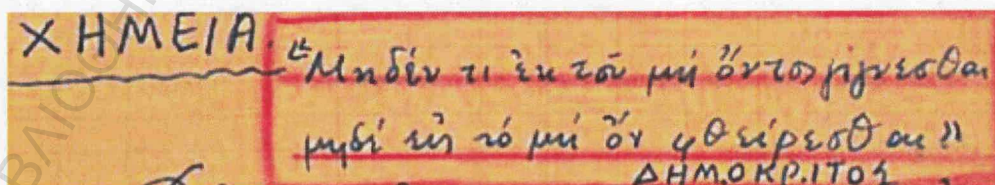 ΧΗΜΕΙΑ.
"Μηδέν τι ἐκ τοῦ μή ὄντος γίγνεσθαι
μηδέ εἰς τό μή ὄν φθείρεσθαι"
ΔΗΜΟΚΡΙΤΟΣ